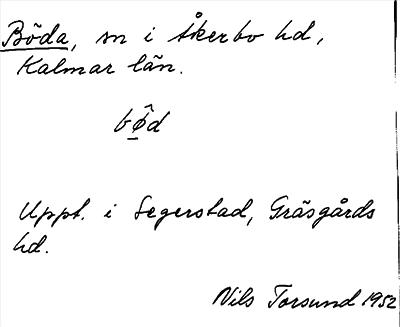 Böda, sn i Åkerbo hd,
Kalmar län.
bø̂d
Uppt. i Segerstad, Gräsgårds
hd.
Nils Torsund 1952